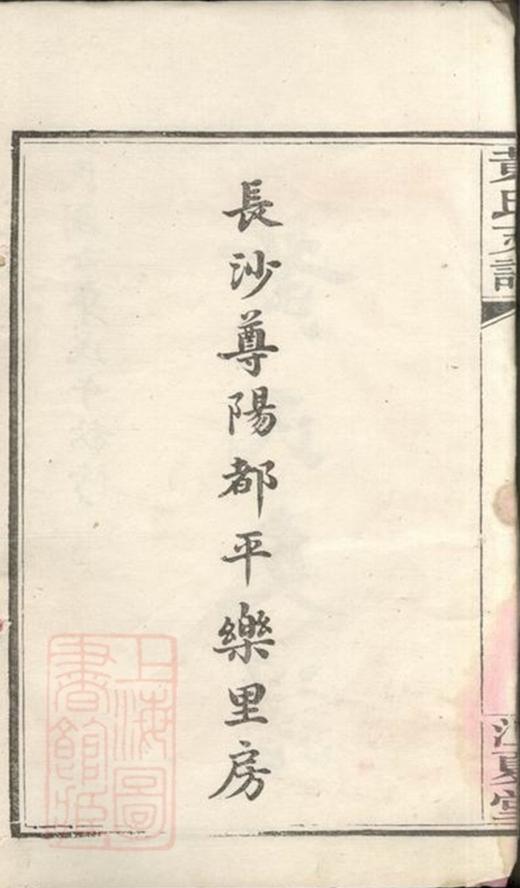 黃氏支譜
江夏堂
長沙尊陽都平樂里房
上海圖
書館藏